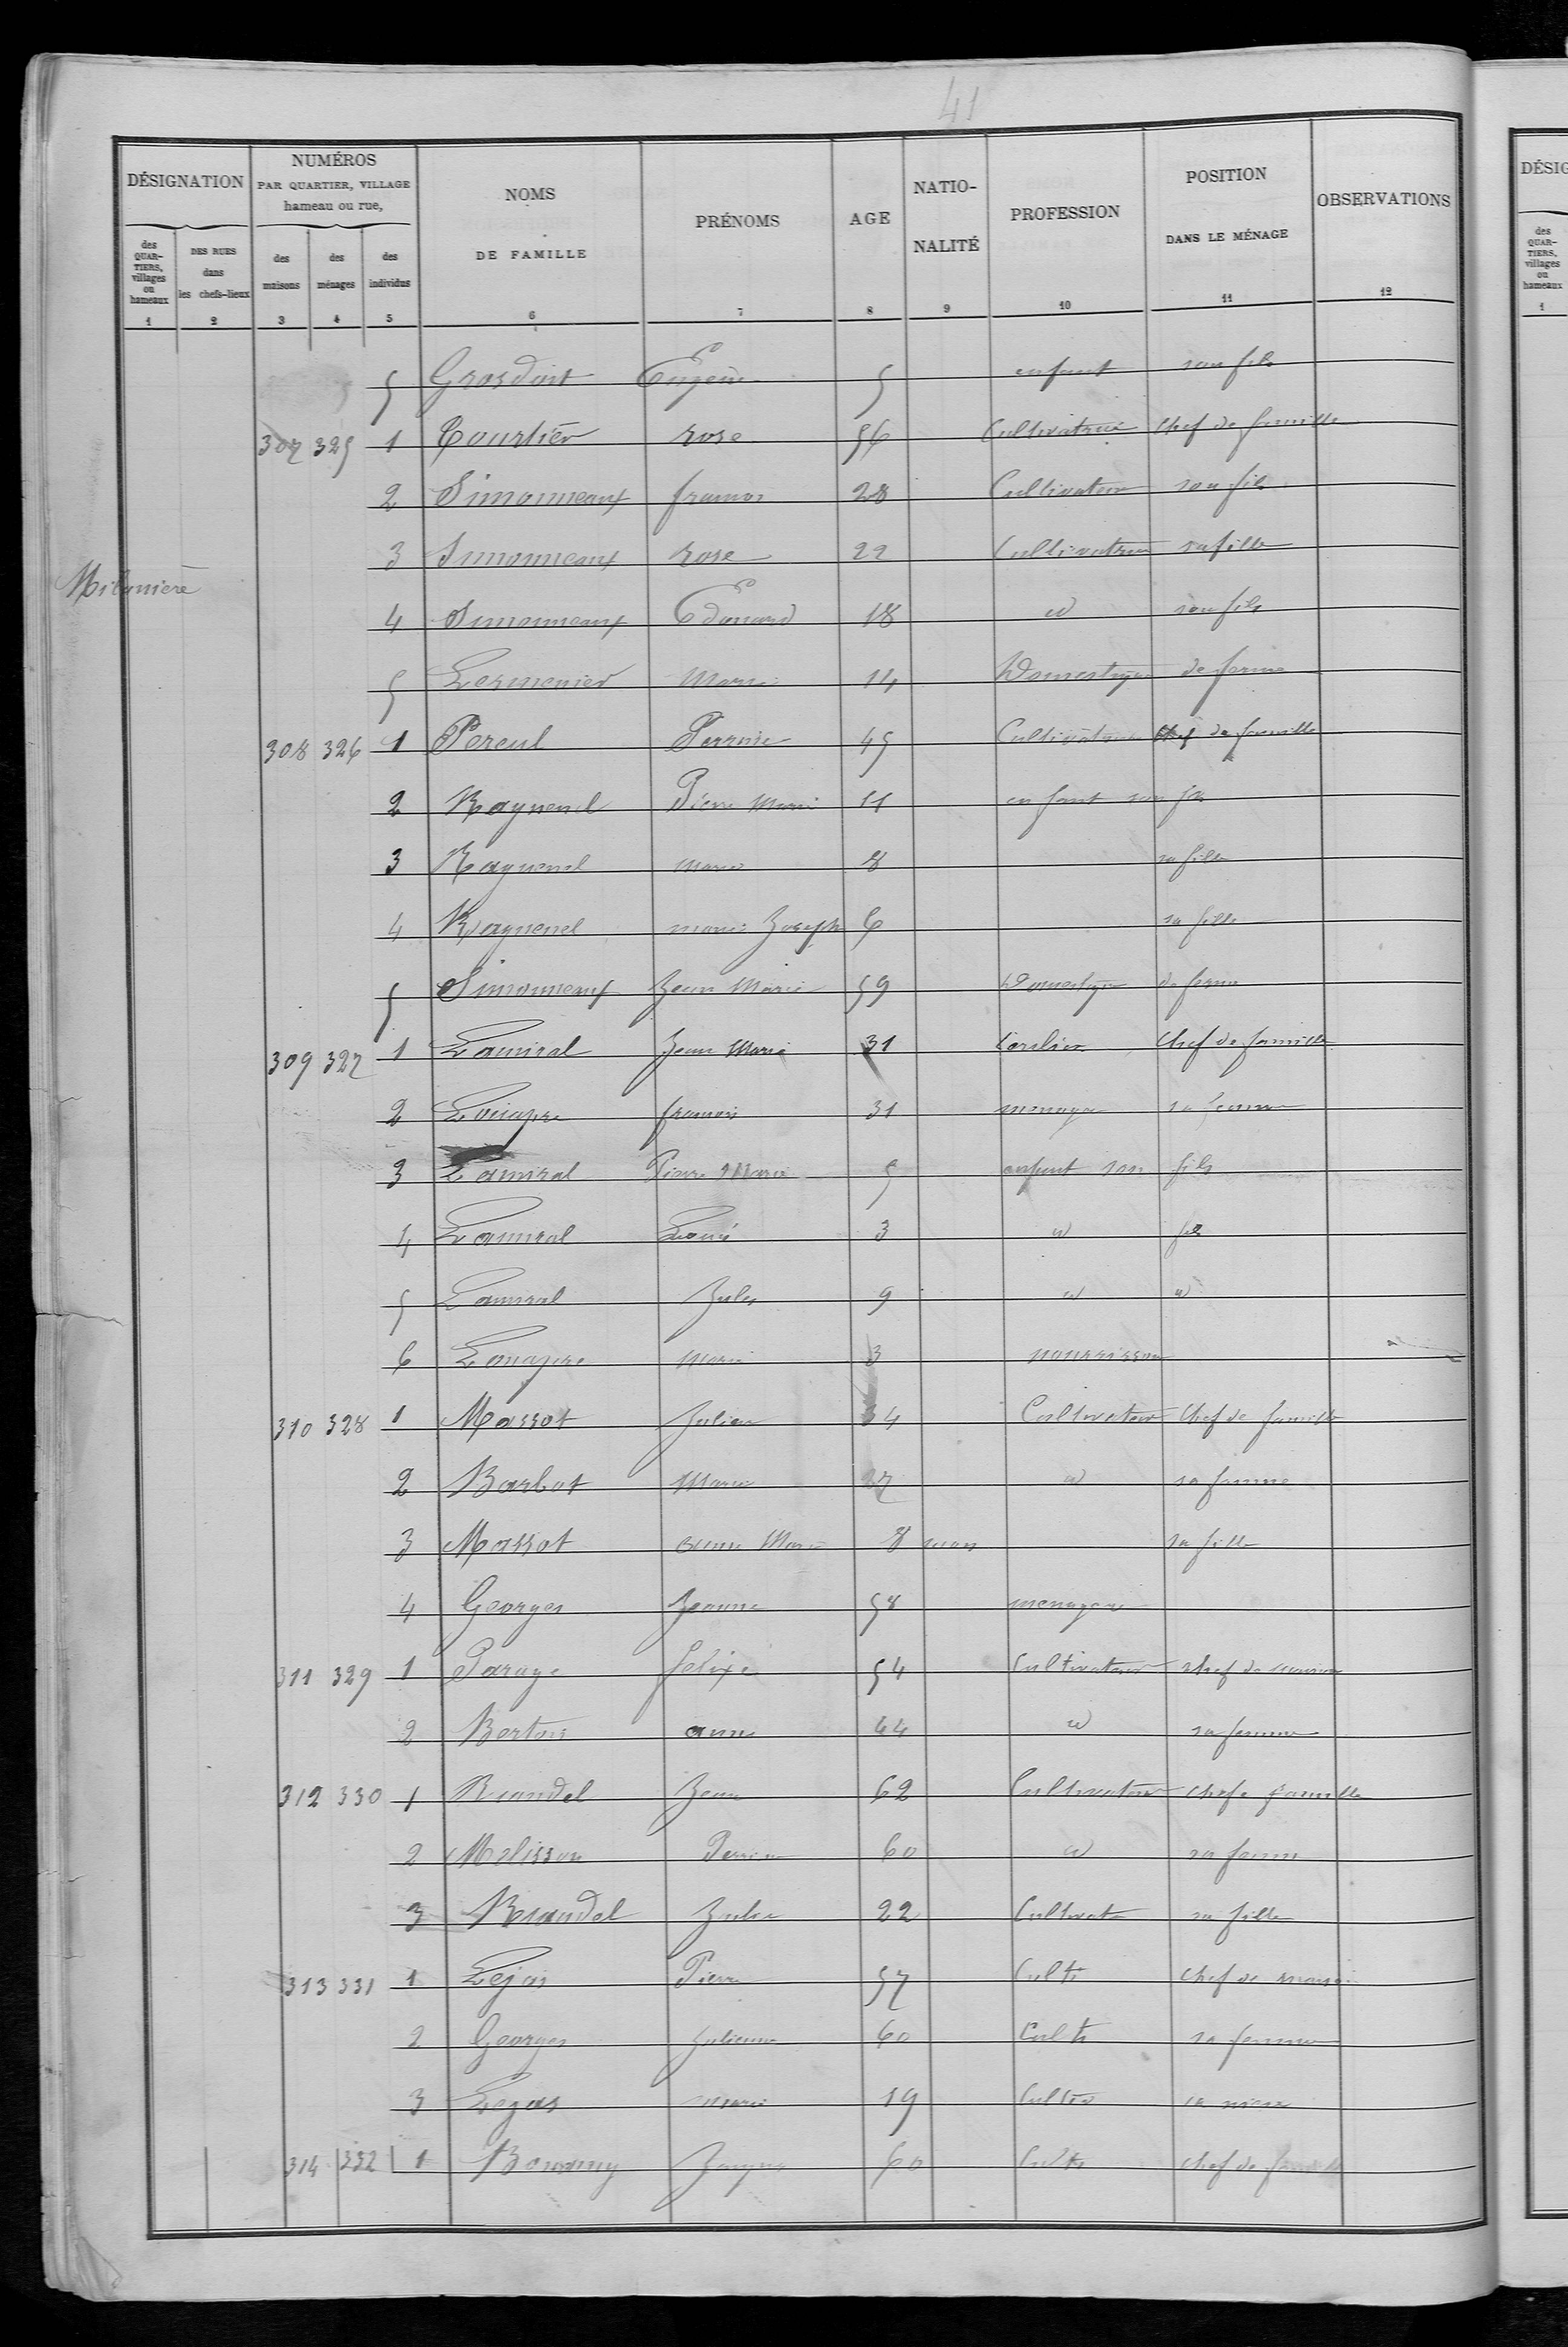 41
DÉSIGNATION NUMÉROS PAR QUARTIER, VILLAGE hameau ou rue, NOMS DE FAMILLE PRÉNOMS AGE NATIO-NALITÉ PROFESSION POSITION DANS LE MÉNAGE OBSERVATIONS
des QUAR-TIERS, villages ou hameaux DES RUES dans les chefs-lieux des maisons des ménages des individus
1 2 3 4 5 6 7 8 9 10 11 12
5 Grosdoit Eugène 5 enfant son fils
307 325 1 Courtier rose 56 Cultivatrice Chef de famille
2 Simonneaux 28 Cultivateur son fils
3 Simonneaux rose 22 Cultivatrice sa fille
4 Simonneaux Edouard 18 id son fils
5 Marie 14 Domestique de ferme
308 326 1 Pereul Perrine 45 Cultivatrice Chef de famille
2 Raynenel Pierre Marie 11 enfant son fils
3 Raynenel Marie 8 sa fille
4 Raynenel marie Joseph 6 sa fille
5 Simonneaux Jean Marie 59 Domestique de ferme
309 327 1 Lamiral Jean Marie 31 Chef de famille
2 31 menagere sa femme
3 Lamiral Pierre Marie 5 enfant son fils
4 Lamiral Louis 3 id fils
5 Lamiral Jules 9 id id
6 Marie 3 nourrisson
310 328 1 Massot Julien 34 Cultivateur Chef de famille
2 Barbot Marie 27 id sa femme
3 Massot anne Marie 8 mois sa fille
4 Georges Jeanne 58 menagere
311 329 1 Parage felixe 54 Cultivateur chef de maison
2 Bertois anne 44 id sa femme
312 330 1 Ruaudel Jean 62 Cultivateur chef famille
2 Melisson Perrine 60 id sa femme
3 Ruaudel Julie 22 Cultivat sa fille
313 331 1 Lejas Pierre 57 Cultr chef de maison
2 Georges Julienne 60 Cultr sa femme
3 Lejas Marie 19 Cultr sa niece
314 332 1 60 Cultr chef de famille
DÉSIG
des QUAR-TIERS, villages ou hameaux
1